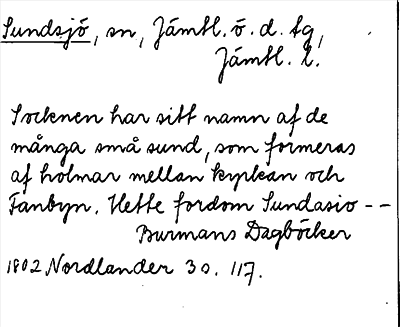 Sundsjö, sn, Jämtl. ö. d. tg,
Jämtl. l.
Socknen har sitt namn af de
många små sund, som formeras
af holmar mellan kyrkan och
Fanbyn. Hette fordom Sundasio --
Burmans Dagböcker
1802 Nordlander 30. 117.